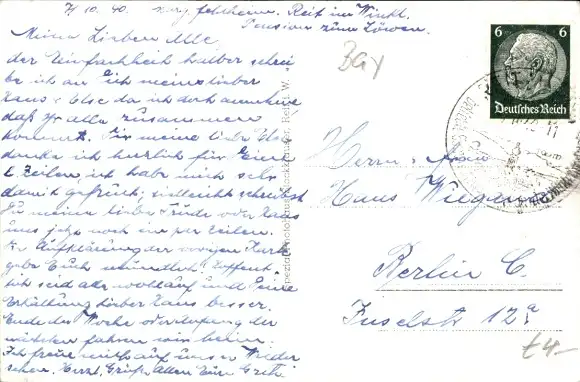 7/10. 40. Reit im Winkl.
Pension zum Löwen.
Meine Lieben Alle,
der Einfachheit halber schrei
be ich an Euch meine lieber
Hans & Else da ich doch annehme
daß Ihr alle zusammen
kommt. Für meine liebe Else
danke ich herzlich für Deine
l. Zeilen, ich habe mich sehr
damit gefreut; vielleicht schreibst
Du meine liebe Trude oder Hans
uns jetzt noch ein par Zeilen.
Die Aufklärung der vorigen Karte
gebe Euch mündlich. Hoffent-
lich seid alle wohlauf und Deine
Erkältung lieber Hans besser.
Ende der Woche oder Anfang der
nächsten fahren wir heim.
Ich freue mich auf unser Wieder
sehen. Herzl. Grüße Allen Eure Grete
Bay
6 6
Deutsches Reich
Herrn u. Frau
Hans
Berlin C.
Inselstr 12a
£4-